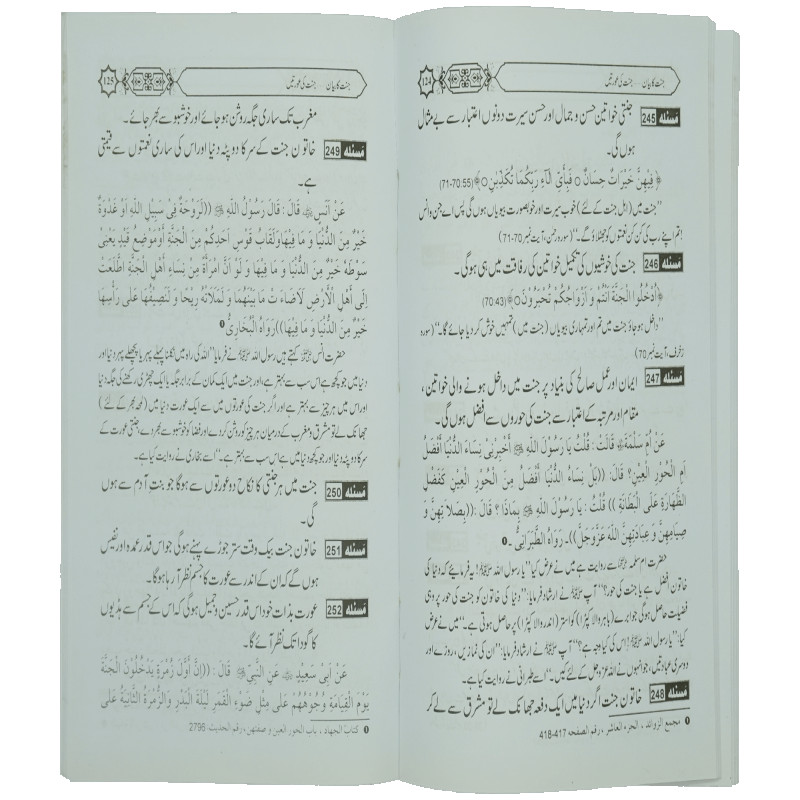 124
جنت کا بیان ... جنت کی عورتیں
مسئلہ 245 جنتی خواتین حسن و جمال اور حسن سیرت دونوں اعتبار سے بے مثال
ہوں گی۔
﴿فِيْهِنَّ خَيْرَاتٌ حِسَانٌ ○ فَبِأَيِّ آلَاءِ رَبِّكُمَا تُكَذِّبٰنِ ○﴾ (55:70-71)
”جنت میں (اہل جنت کے لئے) خوب سیرت اور خوبصورت بیویاں ہوں گی پس اے جن و انس
! تم اپنے رب کی کن کن نعمتوں کو جھٹلاؤ گے۔“ (سورہ رحمن، آیت نمبر 70-71)
مسئلہ 246 جنت کی خوشیوں کی تکمیل خواتین کی رفاقت میں ہی ہو گی۔
﴿اُدْخُلُوا الْجَنَّةَ اَنْتُمْ وَ اَزْوَاجُكُمْ تُحْبَرُوْنَ ○﴾ (70:43)
”داخل ہو جاؤ جنت میں تم اور تمہاری بیویاں (جنت میں) تمہیں خوش کر دیا جائے گا۔“ (سورہ
زخرف، آیت نمبر 70)
مسئلہ 247 ایمان اور عمل صالح کی بنیاد پر جنت میں داخل ہونے والی خواتین،
مقام اور مرتبہ کے اعتبار سے جنت کی حوروں سے افضل ہوں گی۔
عَنْ اُمِّ سَلَمَةَ قَالَتْ : قُلْتُ يَا رَسُوْلَ اللّٰهِ ﷺ اَخْبِرْنِيْ نِسَاءُ الدُّنْيَا اَفْضَلُ
اَمِ الْحُوْرُ الْعِيْنِ؟ قَالَ: ((بَلْ نِسَاءُ الدُّنْيَا اَفْضَلُ مِنَ الْحُوْرِ الْعِيْنِ كَفَضْلِ
الظِّهَارَةِ عَلَى الْبِطَانَةِ)) قُلْتُ : يَا رَسُوْلَ اللّٰهِ ﷺ بِمَاذَا ؟ قَالَ : ((بِصَلَاتِهِنَّ وَ
صِيَامِهِنَّ وَ عِبَادَتِهِنَّ اللّٰهَ عَزَّوَجَلَّ))۔ رَوَاهُ الطَّبْرَانِيُّ ۔ ❶
حضرت ام سلمہ سے روایت ہے میں نے عرض کیا ”یا رسول اللہ ﷺ! یہ فرمائیے کہ دنیا کی
خاتون افضل ہے یا جنت کی حور؟“ آپ ﷺ نے ارشاد فرمایا: ”دنیا کی خاتون کو جنت کی حور پر وہی
فضیلت حاصل ہو گی جو ابرے (باہر والا کپڑا) کو استر (اندر والا کپڑا) پر حاصل ہوتی ہے۔“ میں نے عرض
کیا: ”یا رسول اللہ ﷺ! اس کی کیا وجہ ہے؟“ آپ ﷺ نے ارشاد فرمایا: ”ان کی نمازیں، روزے اور
دوسری عبادتیں، جو انہوں نے اللہ عزوجل کے لئے کیں۔“ اسے طبرانی نے روایت کیا ہے۔
مسئلہ 248 خاتون جنت اگر دنیا میں ایک دفعہ جھانک لے تو مشرق سے لے کر
❶ مجمع الزوائد ، الجزء العاشر ، رقم الصفحه 417-418
125
جنت کا بیان ... جنت کی عورتیں
مغرب تک ساری جگہ روشن ہو جائے اور خوشبو سے بھر جائے۔
مسئلہ 249 خاتون جنت کے سر کا دوپٹہ دنیا اور اس کی ساری نعمتوں سے قیمتی
ہے۔
عَنْ اَنَسٍ قَالَ : قَالَ رَسُوْلُ اللّٰهِ ﷺ ((لَرَوْحَةٌ فِيْ سَبِيْلِ اللّٰهِ اَوْ غَدْوَةٌ
خَيْرٌ مِنَ الدُّنْيَا وَ مَا فِيْهَا وَلَقَابُ قَوْسِ اَحَدِكُمْ مِنَ الْجَنَّةِ اَوْ مَوْضِعُ قِيْدٍ يَعْنِيْ
سَوْطَهُ خَيْرٌ مِنَ الدُّنْيَا وَ مَا فِيْهَا وَ لَوْ اَنَّ امْرَأَةً مِنْ نِسَاءِ اَهْلِ الْجَنَّةِ اطَّلَعَتْ
اِلٰى اَهْلِ الْاَرْضِ لَاَضَاءَتْ مَا بَيْنَهُمَا وَ لَمَلَاَتْهُ رِيْحًا وَ لَنَصِيْفُهَا عَلٰى رَأْسِهَا
خَيْرٌ مِنَ الدُّنْيَا وَ مَا فِيْهَا)) رَوَاهُ الْبُخَارِيُّ ❶
حضرت انس کہتے ہیں رسول اللہ ﷺ نے فرمایا ”اللہ کی راہ میں نکلنا پہلے پہر یا پچھلے پہر دنیا اور
دنیا میں جو کچھ ہے اس سب سے بہتر ہے، اور جنت میں ایک کمان کے برابر جگہ یا ایک چھڑی رکھنے کی جگہ دنیا
اور اس میں ہر چیز سے بہتر ہے اور اگر جنت کی عورتوں میں سے ایک عورت دنیا میں (لمحہ بھر کے لئے)
جھانک لے تو مشرق و مغرب کے درمیان ہر چیز کو روشن کر دے اور فضا کو خوشبو سے بھر دے، جنتی عورت کے
سر کا دوپٹہ دنیا اور جو کچھ دنیا میں ہے اس سب سے بہتر ہے۔“ اسے بخاری نے روایت کیا ہے۔
مسئلہ 250 جنت میں ہر جنتی کا نکاح دو عورتوں سے ہوگا جو بنت آدم سے ہوں
گی۔
مسئلہ 251 خاتون جنت بیک وقت ستر جوڑے پہنے ہوگی جو اس قدر عمدہ اور نفیس
ہوں گے کہ ان کے اندر سے عورت کا جسم نظر آ رہا ہوگا۔
مسئلہ 252 عورت بذات خود اس قدر حسین و جمیل ہوگی کہ اس کے جسم سے ہڈیوں
کا گودا تک نظر آئے گا۔
عَنْ اَبِيْ سَعِيْدٍ عَنِ النَّبِيِّ ﷺ قَالَ : ((اِنَّ اَوَّلَ زُمْرَةٍ يَدْخُلُوْنَ الْجَنَّةَ
يَوْمَ الْقِيَامَةِ وُجُوْهُهُمْ عَلٰى مِثْلِ ضَوْءِ الْقَمَرِ لَيْلَةَ الْبَدْرِ وَ الزُّمْرَةُ الثَّانِيَةُ عَلٰى
❶ كتاب الجهاد ، باب الحور العين و صفتهن ، رقم الحديث: 2796